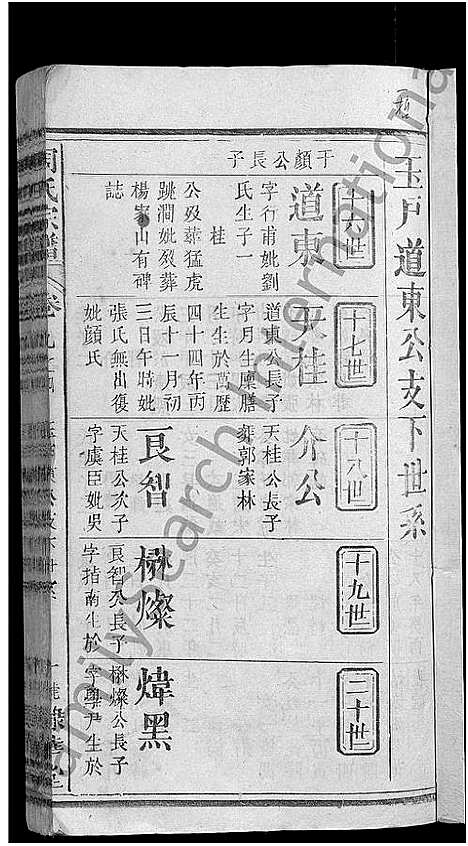 玉戸道東公支下世系
十六世
于顏公長子
道東
字行甫妣劉
氏生子一
桂
公歿葬猛虎
跳澗妣歿葬
楊家山有碑
誌
十七世
天桂
道東公長子
字月生廩膳
生生於萬歷
四十四年丙
辰十一月初
三日午時妣
張氏無出復
妣顏氏
十八世
介公
天桂公長子
葬郭家林
良智
天桂公次子
字虞臣妣吳
十九世
楙燦
良智公長子
字指南生於
二十世
煒黑
楙燦公長子
字與尹生於
周氏宗譜
卷九之四
FamilySearch International